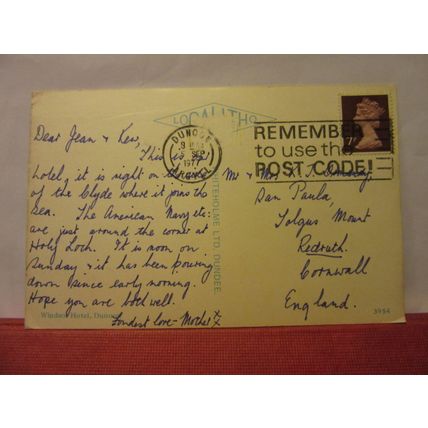 LOCALITHO
DUNOON
SEP
1977
ARGYLL
REMEMBER
to use the
POST CODE!
Dear Jean & Ken,
This is
hotel, it is right on the
of the Clyde where it joins the
sea. The American Navy etc:
are just around the corner at
Holy Loch. It is noon on
Sunday & it has been pouring
down since early morning.
Hope you are both well.
Fondest love - Mother x
x
WHITEHOLME LTD. DUNDEE.
Mr & Mrs K.J.
San Paula,
Tolgus Mount
Redruth.
Cornwall
England.
Windsor Hotel, Dunoon
3954